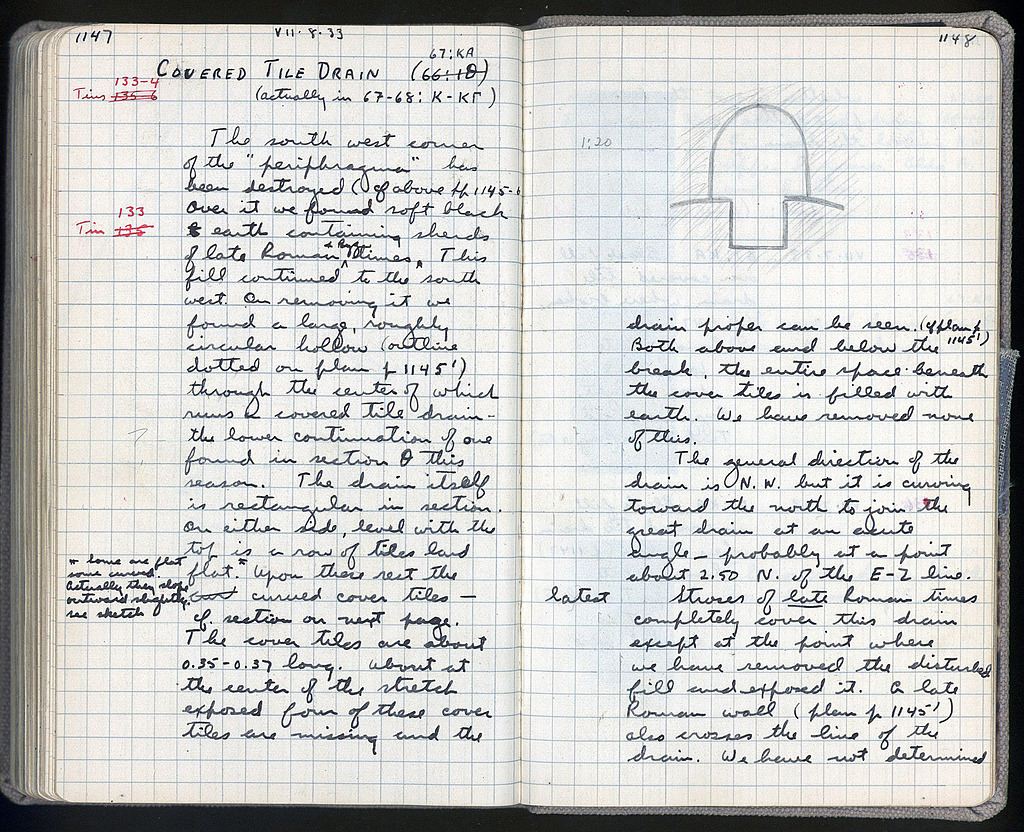 1147
VII·8·33
67:KA
COVERED TILE DRAIN (66:IΘ)
(actually in 67-68: K-KΓ)
133-4
Tins 135-6
The south west corner
of the "periphragma" has
been destroyed (cf above pp 1145-6
Over it we found soft black
133
Tin 135
earth containing sherds
of late Roman & Byz times. This
fill continued to the south
west. On removing it we
found a large, roughly
circular hollow (outline
dotted on plan p 1145')
through the center of which
runs a covered tile drain -
the lower continuation of one
found in section Θ this
season. The drain itself
is rectangular in section.
On either side, level with the
top is a row of tiles laid
flat.* Upon these rest the
curved cover tiles —
cf. section on next page.
The cover tiles are about
0.35-0.37 long. About at
the center of the stretch
exposed four of these cover
tiles are missing and the
* Some are flat
some curved.
Actually they slope
outward slightly.
see sketch
1148
1:20
drain proper can be seen. (cf plan p
1145')
Both above and below the
break, the entire space beneath
the cover tiles is filled with
earth. We have removed none
of this.
The general direction of the
drain is N.W. but it is curving
toward the north to join the
great drain at an acute
angle — probably at a point
about 2.50 N. of the E-Z line.
latest
Stroses of late Roman times
completely cover this drain
except at the point where
we have removed the disturbed
fill and exposed it. A late
Roman wall (plan p 1145')
also crosses the line of the
drain. We have not determined